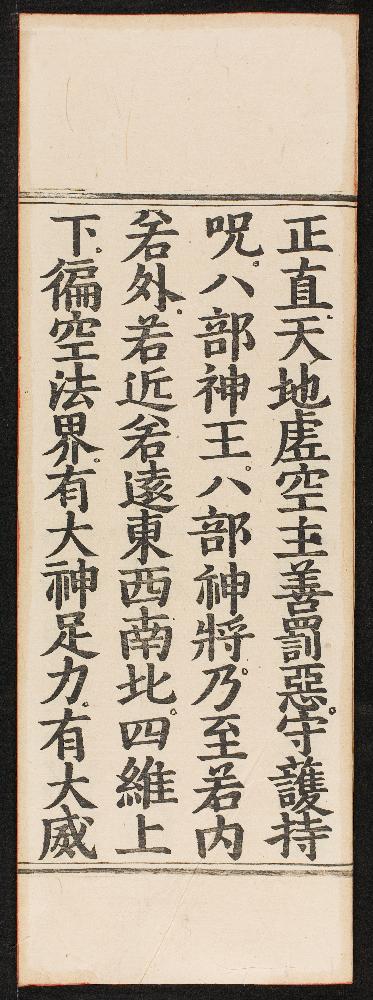 正直。天地虛空主善罰惡。守護持
呪。八部神王。八部神將。乃至若内
若外。若近若遠。東西南北。四維上
下。徧空法界。有大神足力。有大威